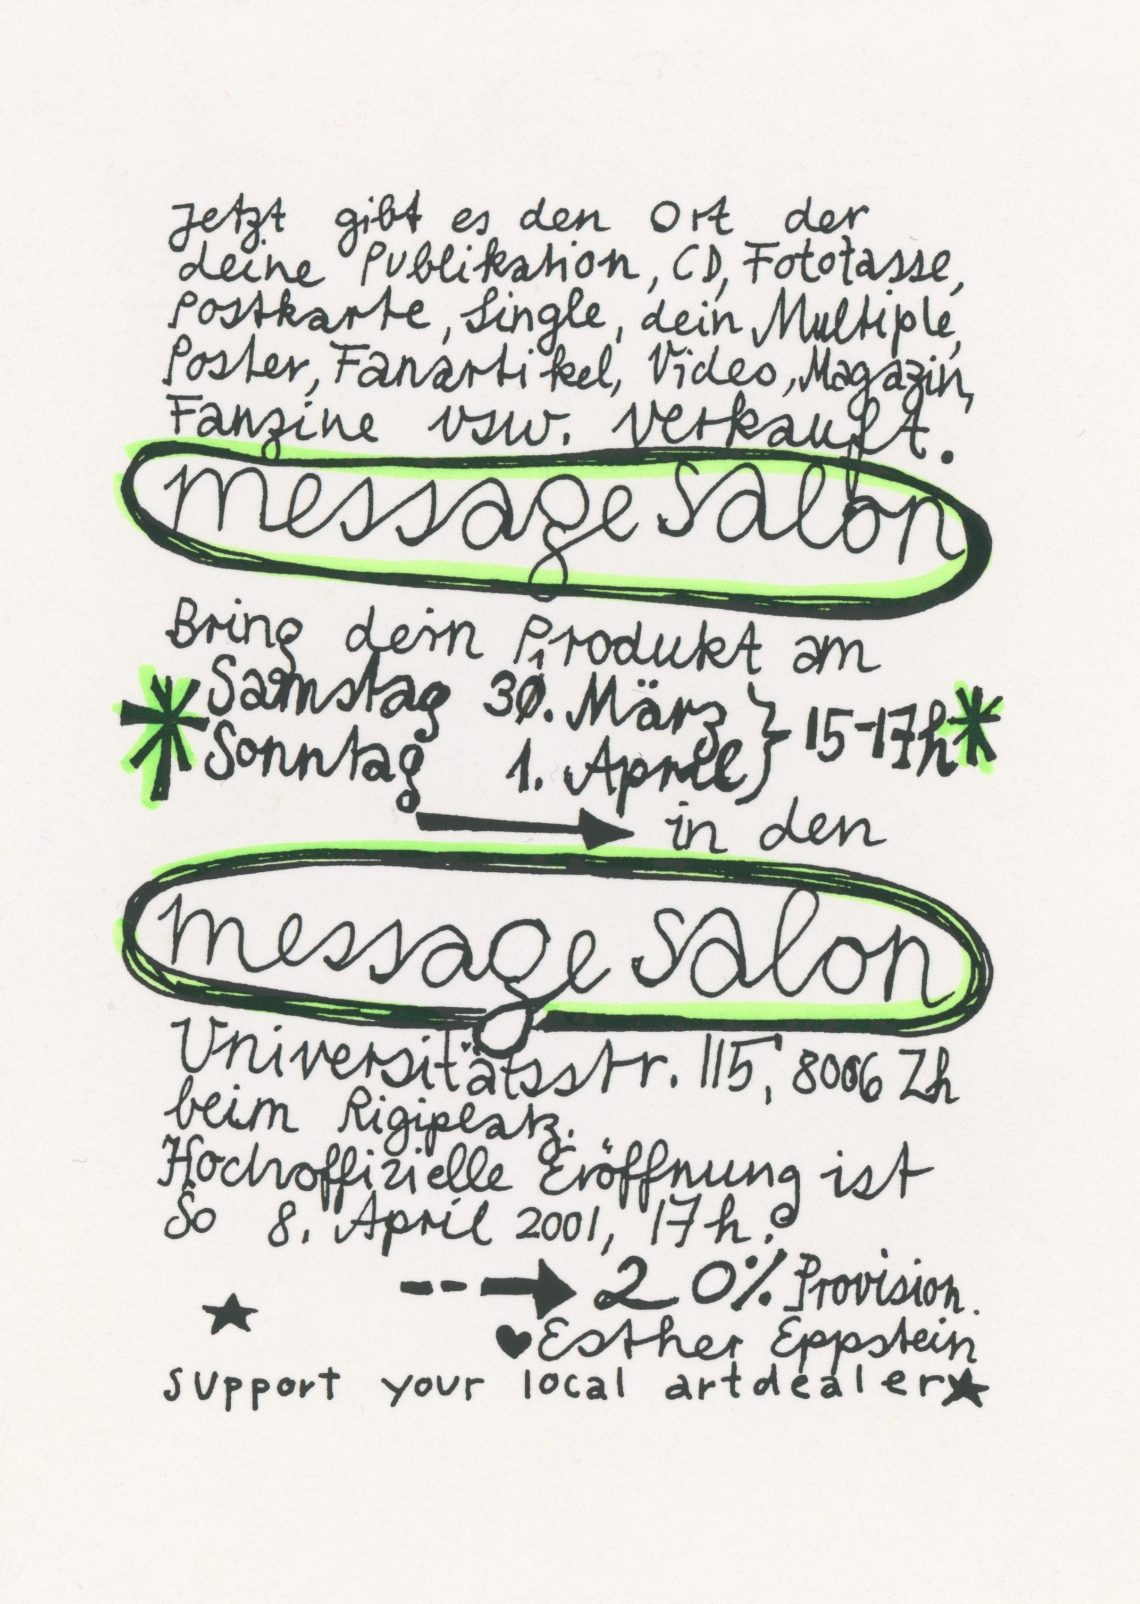 Jetzt gibt es den Ort der
deine Publikation, CD, Fototasse,
Postkarte, Single, dein Multiple,
Poster, Fanartikel, Video, Magazin,
Fanzine usw. verkauft.
message salon
Bring dein Produkt am
Samstag 31. März } 15-17h
Sonntag 1. April
in den
message salon
Universitätsstr. 115, 8006 Zh
beim Rigiplatz.
Hochoffizielle Eröffnung ist
So 8. April 2001, 17h.
20% Provision.
Esther Eppstein
support your local artdealer